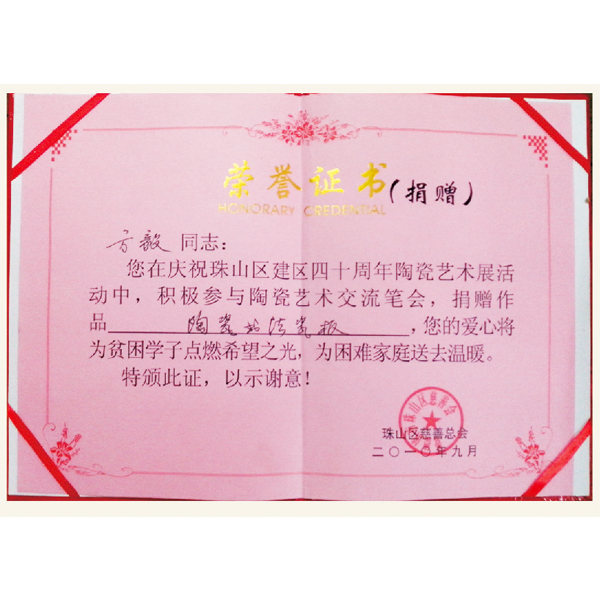 荣誉证书(捐赠)
HONORARY CREDENTIAL
方毅 同志:
您在庆祝珠山区建区四十周年陶瓷艺术展活
动中,积极参与陶瓷艺术交流笔会,捐赠作
品 陶瓷书法瓷板 ,您的爱心将
为贫困学子点燃希望之光,为困难家庭送去温暖。
特颁此证,以示谢意!
珠山区慈善总会
二〇一〇年九月